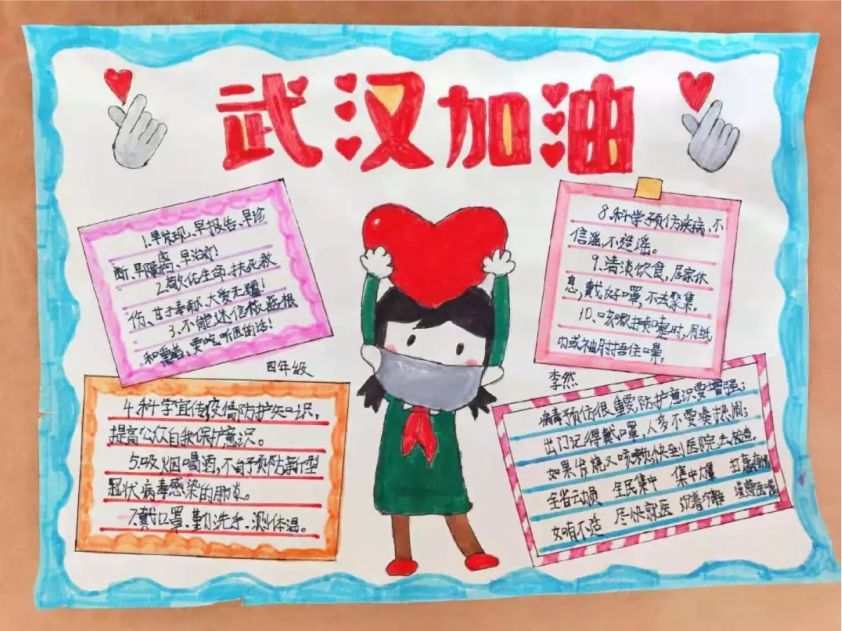 武汉加油
1.早发现、早报告、早诊
断、早隔离、早治疗!
2.敬佑生命、扶死救
伤、甘于奉献、大爱无疆!
3.不能迷信板蓝根
和熏醋,要吃,听医的话!
四年级
4.科学宣传疫情防护知识,
提高公众自我保护意识。
5.吸烟喝酒,不能预防新型
冠状病毒感染的肺炎。
7.戴口罩、勤洗手、测体温。
8.科学预防疾病,不
信谣,不造谣。
9.清淡饮食,居家休
息,戴好口罩,不去聚集。
10.咳嗽打喷嚏时,用纸
巾或袖肘捂住口鼻。
李然
病毒预防很重要,防护意识要增强;
出门记得戴口罩,人多不要凑热闹;
如果发烧又咳嗽,快到医院去检查。
全省动员 全民集中 集中力量
尽快就医 沉着冷静